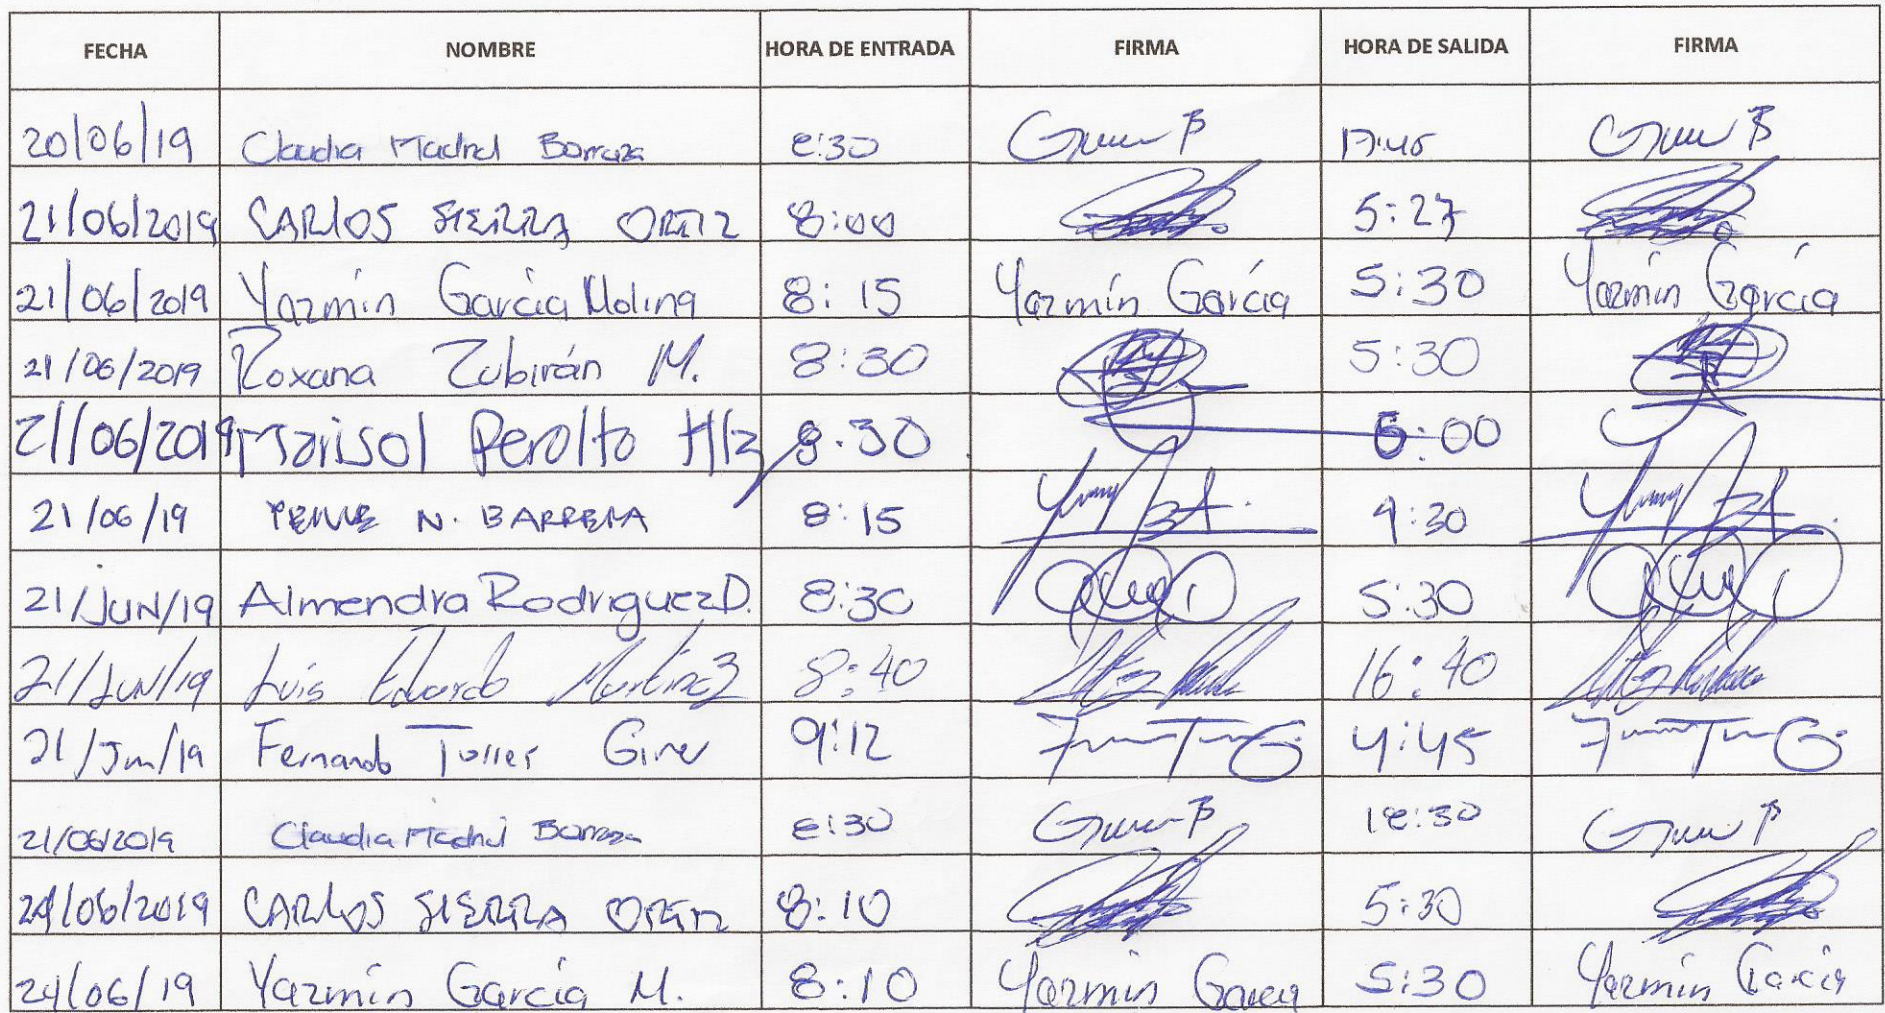 FECHA NOMBRE HORA DE ENTRADA FIRMA HORA DE SALIDA FIRMA
20/06/19 Claudia Madrid Borraza 8:30 17:45
21/06/2019 CARLOS SIERRA ORTIZ 8:00 5:27
21/06/2019 Yazmín García Molina 8:15 Yazmín García 5:30 Yazmín García
21/06/2019 Roxana Zubirán M. 8:30 5:30
21/06/2019 Marisol Peralta Hdz 8:30 5:00
21/06/19 N. BARRERA 8:15 9:30
21/JUN/19 Almendra Rodriguez D. 8:30 5:30
21/JUN/19 Luis Eduardo Martinez 8:40 16:40
21/Jun/19 Fernando Torres 9:12 4:45
21/06/2019 Claudia Madrid Borraza 8:30 18:30
24/06/2019 CARLOS SIERRA ORTIZ 8:10 5:30
24/06/19 Yazmín García M. 8:10 Yazmín García 5:30 Yazmín García